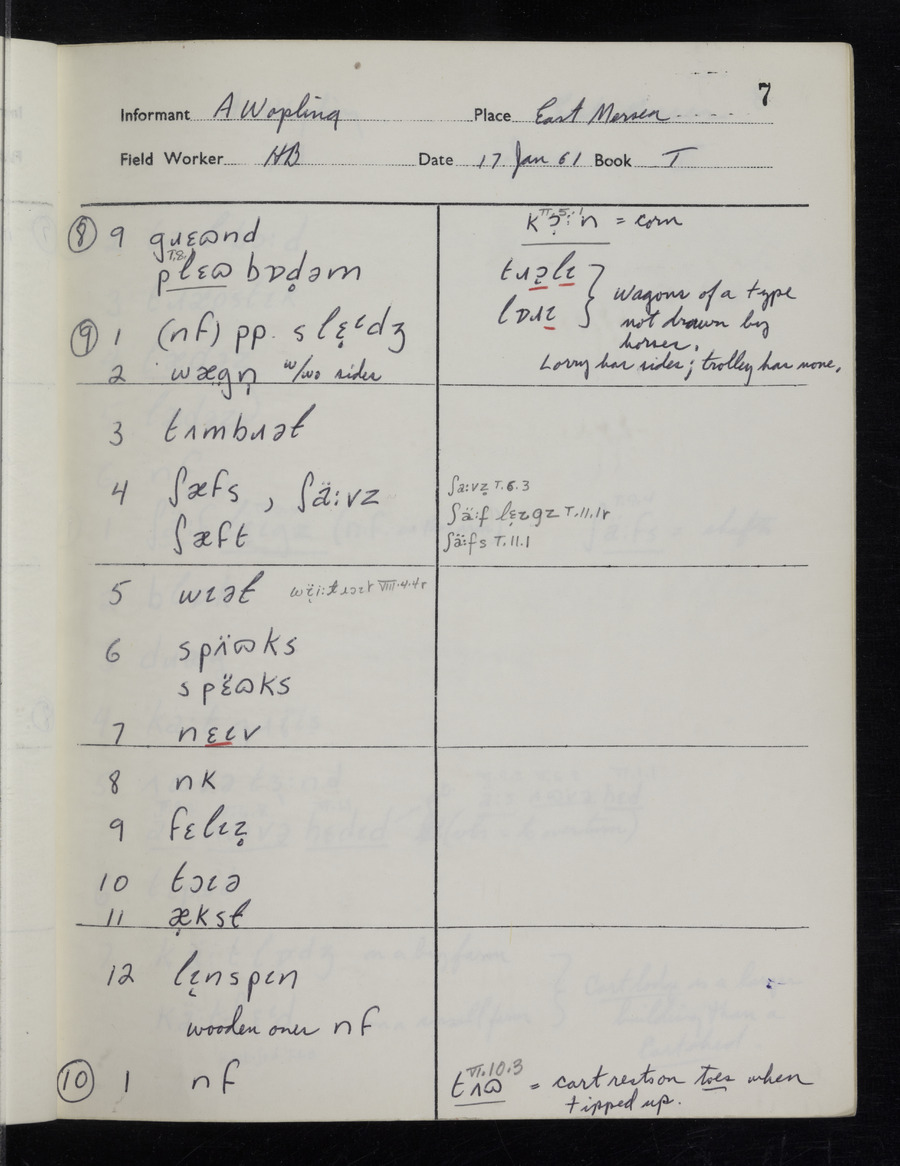 7
Informant A Wopling Place East Mersea
Field Worker HB Date 17 Jan 61 Book T
⑧ 9 gɹɛɷnd
T.8.1
pɫɛɷ bɒd̥əm
⑨ 1 (nf) pp. slɛ̣ɩdʒ
2 wægn̩ w/wo sides
3 tʌmbɹəɫ
4 ʃæfs , ʃä:vz
ʃæft
5 wɩəɫ
6 spʌ̈ɷks
spɛ̈ɷks
7 nɛɩv
8 nk
9 fɛlɩz̥
10 tɔɩə
11 æ̣kst
12 lɩ̣nspɩn
wooden ones nf
⑩ 1 nf
= corn
tɹɒ̣lɩ
lɒɹɩ
} wagons of a type
not drawn by
horses.
Lorry has sides; trolley has none.
ʃa:vz̥ T.6.3
ʃä:f lɛ̣ɩgz T.11.1r
ʃä:fs T.11.1
VIII.4.4r
VI.10.3
tʌɷ = cart rests on toes when
tipped up.